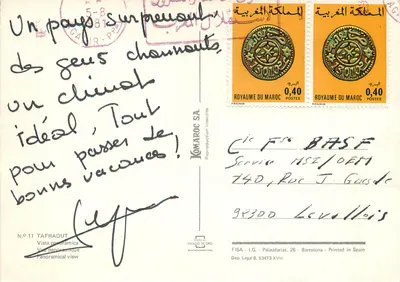 Un pays surprenant,
des gens charmants,
un climat
idéal, Tout
pour passer de
bonnes vacances!
N.º 11 TAFRAOUT
Vista panorámica
Vue panoramique
Panoramical view
KOMAROC S.A.
المملكة المغربية
0,40
ROYAUME DU MAROC POSTES
المملكة المغربية
0,40
ROYAUME DU MAROC POSTES
Cie Fse BASF
Service MSI/OEM
140, Rue J Guesde
92300 Levallois
FISA - I.G. - Palaudarias, 26 - Barcelona - Printed in Spain
Dep. Legal B.